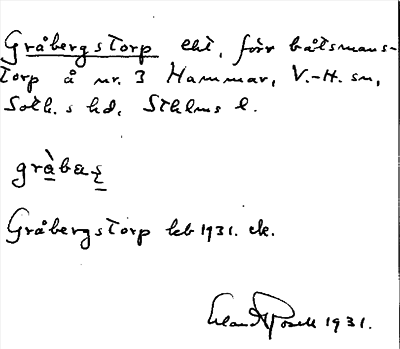 Gråbergstorp eht, förr båtsmans-
torp å nr. 3 Hammar, V.-H. sn,
Soth.s hd, Sthlms l.
gràbaș
Gråbergstorp leb 1931. ek.
Erland Rosell 1931.